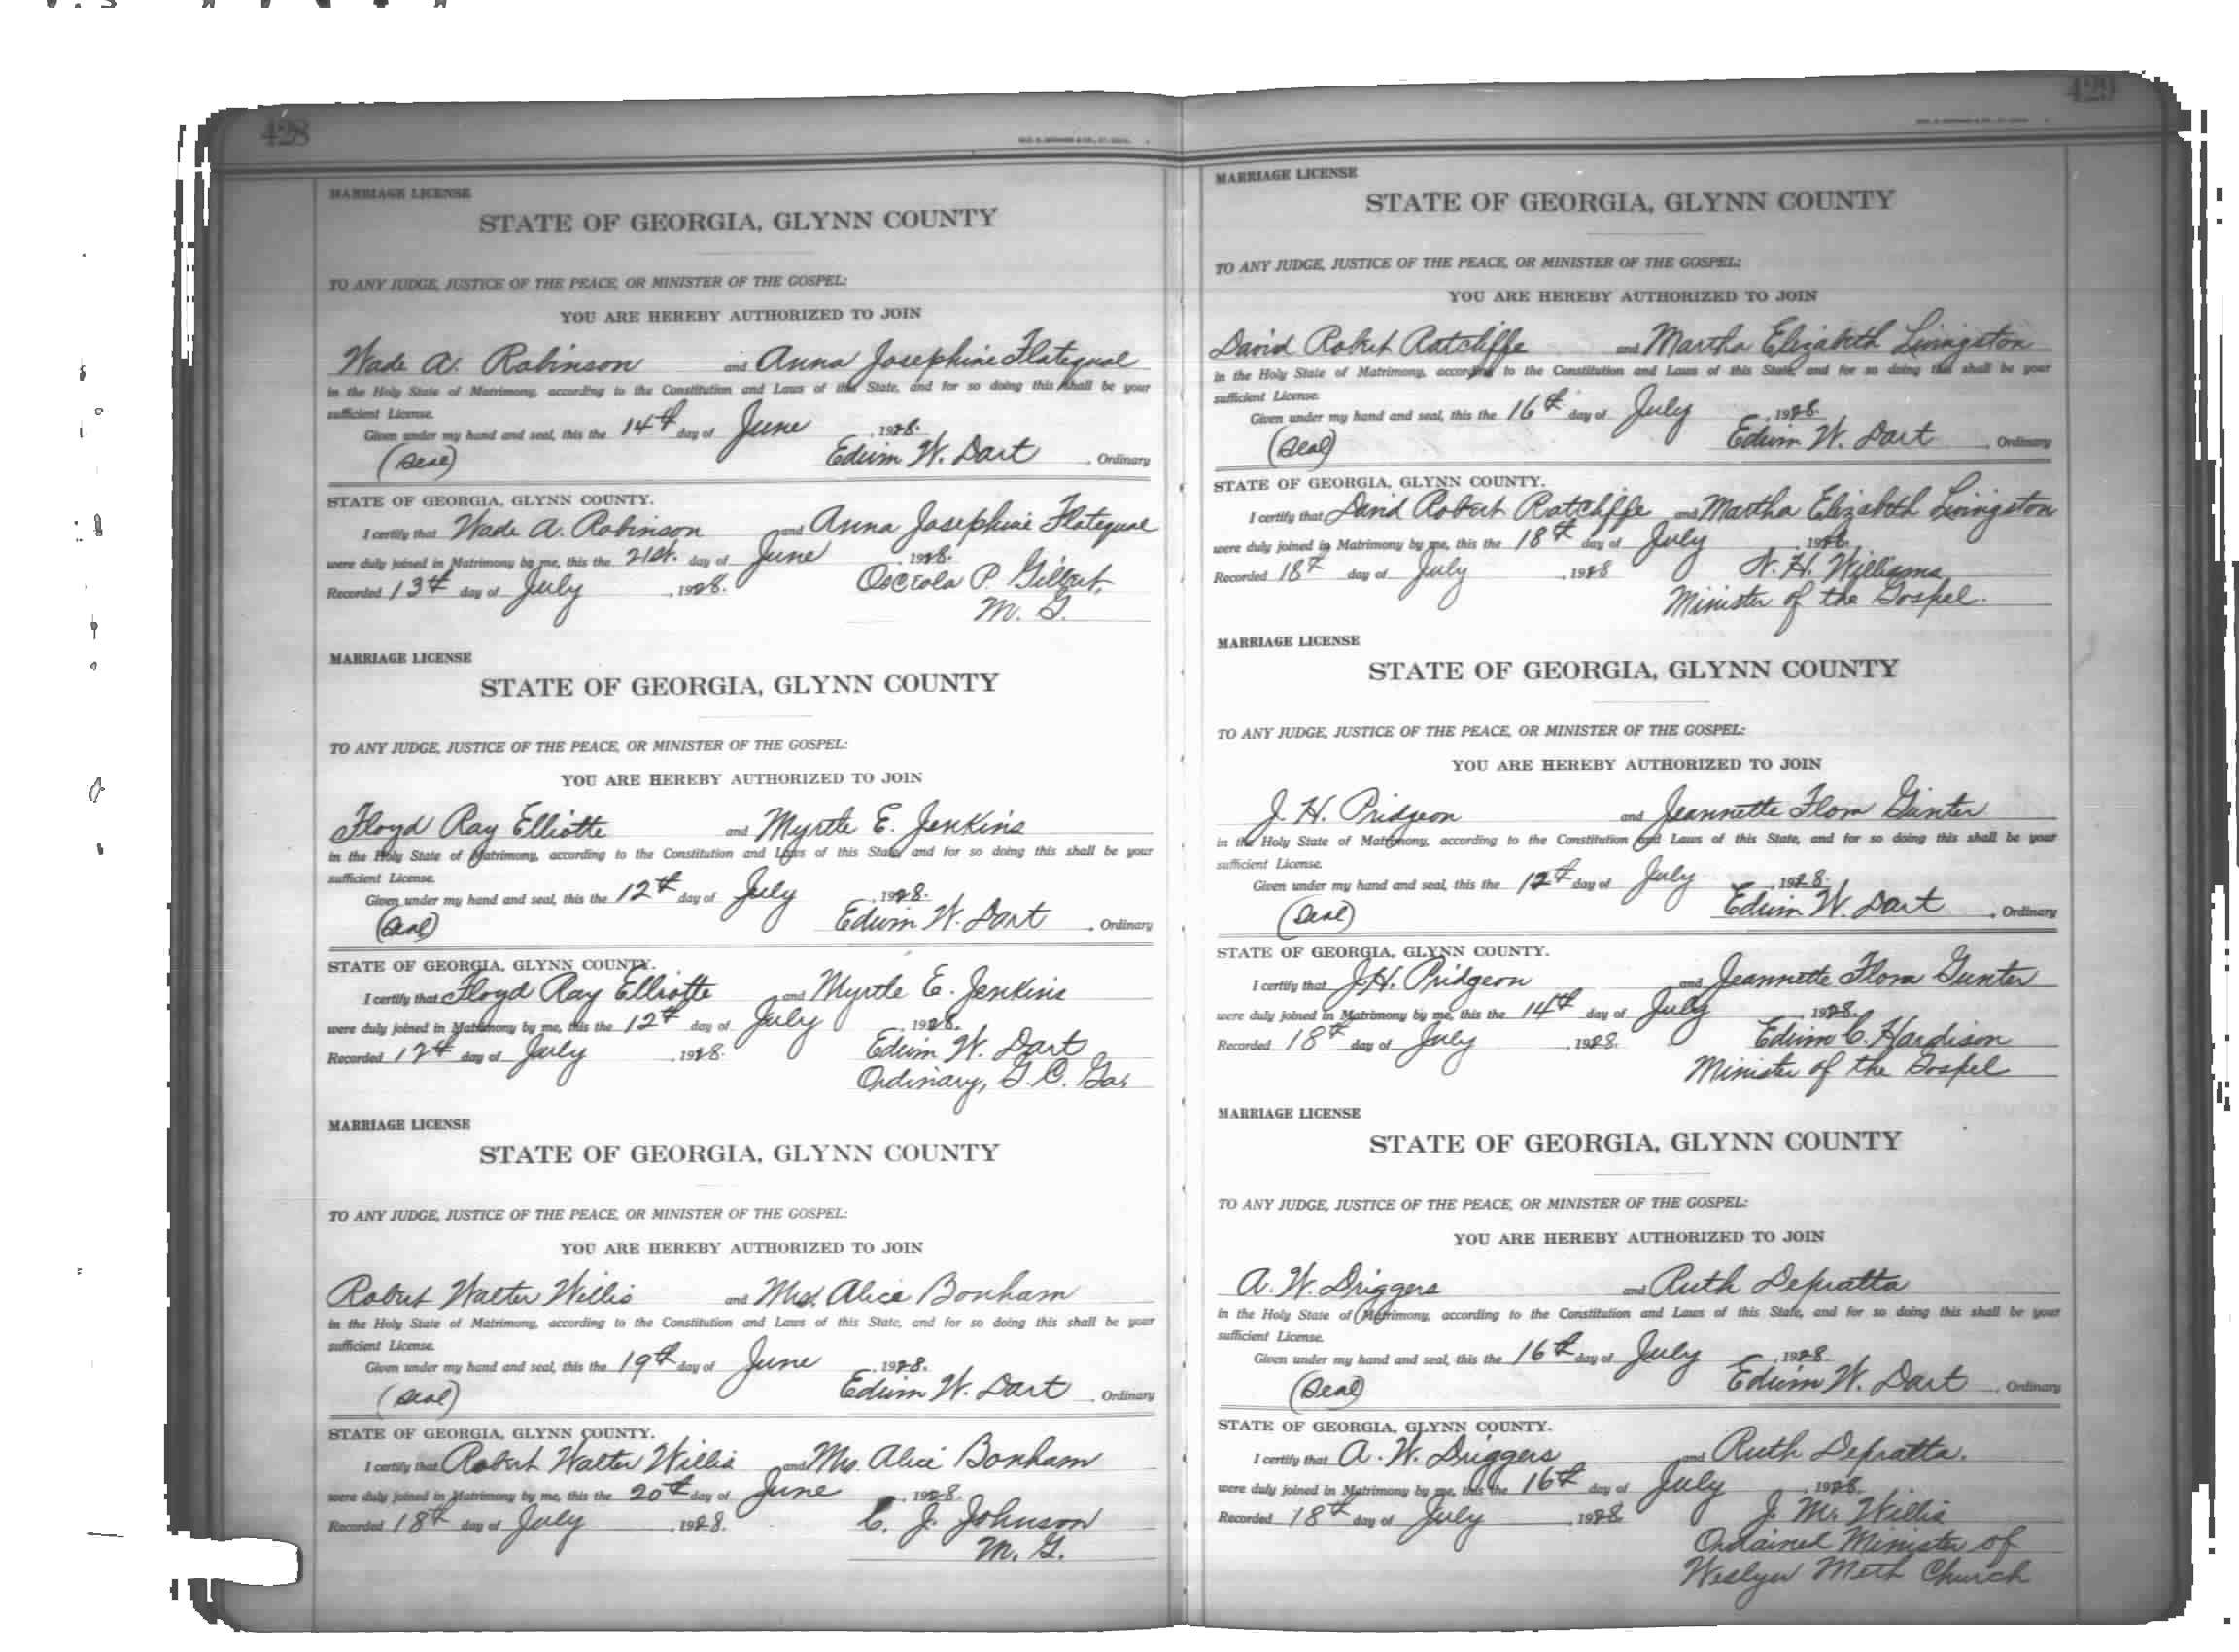 428
MARRIAGE LICENSE
STATE OF GEORGIA, GLYNN COUNTY
TO ANY JUDGE, JUSTICE OF THE PEACE, OR MINISTER OF THE GOSPEL:
YOU ARE HEREBY AUTHORIZED TO JOIN
Wade A. Robinson and Anna Josephine Flatequal
in the Holy State of Matrimony, according to the Constitution and Laws of this State, and for so doing this shall be your
sufficient License.
Given under my hand and seal, this the 14th day of June, 1928.
(Seal) Edwin W. Dart, Ordinary
STATE OF GEORGIA, GLYNN COUNTY.
I certify that Wade A. Robinson and Anna Josephine Flatequal
were duly joined in Matrimony by me, this the 21st. day of June, 1928.
Recorded 13th day of July, 1928. Osceola P. Gilbert,
M. G.
MARRIAGE LICENSE
STATE OF GEORGIA, GLYNN COUNTY
TO ANY JUDGE, JUSTICE OF THE PEACE, OR MINISTER OF THE GOSPEL:
YOU ARE HEREBY AUTHORIZED TO JOIN
Floyd Ray Elliotte and Myrtle E. Jenkins
in the Holy State of Matrimony, according to the Constitution and Laws of this State, and for so doing this shall be your
sufficient License.
Given under my hand and seal, this the 12th day of July, 1928.
(Seal) Edwin W. Dart, Ordinary
STATE OF GEORGIA, GLYNN COUNTY.
I certify that Floyd Ray Elliotte and Myrtle E. Jenkins
were duly joined in Matrimony by me, this the 12th day of July, 1928.
Recorded 12th day of July, 1928. Edwin W. Dart
Ordinary, G. C. Ga.
MARRIAGE LICENSE
STATE OF GEORGIA, GLYNN COUNTY
TO ANY JUDGE, JUSTICE OF THE PEACE, OR MINISTER OF THE GOSPEL:
YOU ARE HEREBY AUTHORIZED TO JOIN
Robert Walter Willis and Mrs. Alice Bonham
in the Holy State of Matrimony, according to the Constitution and Laws of this State, and for so doing this shall be your
sufficient License.
Given under my hand and seal, this the 19th day of June, 1928.
(Seal) Edwin W. Dart, Ordinary
STATE OF GEORGIA, GLYNN COUNTY.
I certify that Robert Walter Willis and Mrs. Alice Bonham
were duly joined in Matrimony by me, this the 20th day of June, 1928.
Recorded 18th day of July, 1928. C. J. Johnson
M. G.
429
MARRIAGE LICENSE
STATE OF GEORGIA, GLYNN COUNTY
TO ANY JUDGE, JUSTICE OF THE PEACE, OR MINISTER OF THE GOSPEL:
YOU ARE HEREBY AUTHORIZED TO JOIN
David Robert Ratcliffe and Martha Elizabeth Livingston
in the Holy State of Matrimony, according to the Constitution and Laws of this State, and for so doing this shall be your
sufficient License.
Given under my hand and seal, this the 16th day of July, 1928.
(Seal) Edwin W. Dart, Ordinary
STATE OF GEORGIA, GLYNN COUNTY.
I certify that David Robert Ratcliffe and Martha Elizabeth Livingston
were duly joined in Matrimony by me, this the 18th day of July, 1928.
Recorded 18th day of July, 1928 W. H. Williams
Minister of the Gospel.
MARRIAGE LICENSE
STATE OF GEORGIA, GLYNN COUNTY
TO ANY JUDGE, JUSTICE OF THE PEACE, OR MINISTER OF THE GOSPEL:
YOU ARE HEREBY AUTHORIZED TO JOIN
J. H. Pridgeon and Jeannette Flora Gunter
in the Holy State of Matrimony, according to the Constitution and Laws of this State, and for so doing this shall be your
sufficient License.
Given under my hand and seal, this the 12th day of July, 1928.
(Seal) Edwin W. Dart, Ordinary
STATE OF GEORGIA, GLYNN COUNTY.
I certify that J. H. Pridgeon and Jeannette Flora Gunter
were duly joined in Matrimony by me, this the 14th day of July, 1928.
Recorded 18th day of July, 1928. Edwin C. Hardison
Minister of the Gospel
MARRIAGE LICENSE
STATE OF GEORGIA, GLYNN COUNTY
TO ANY JUDGE, JUSTICE OF THE PEACE, OR MINISTER OF THE GOSPEL:
YOU ARE HEREBY AUTHORIZED TO JOIN
A. W. Driggers and Ruth Depratta
in the Holy State of Matrimony, according to the Constitution and Laws of this State, and for so doing this shall be your
sufficient License.
Given under my hand and seal, this the 16th day of July, 1928.
(Seal) Edwin W. Dart, Ordinary
STATE OF GEORGIA, GLYNN COUNTY.
I certify that A. W. Driggers and Ruth Depratta.
were duly joined in Matrimony by me, this the 16th day of July, 1928.
Recorded 18th day of July, 1928 J. M. Willis
Ordained Minister of
Weslyn Meth Church